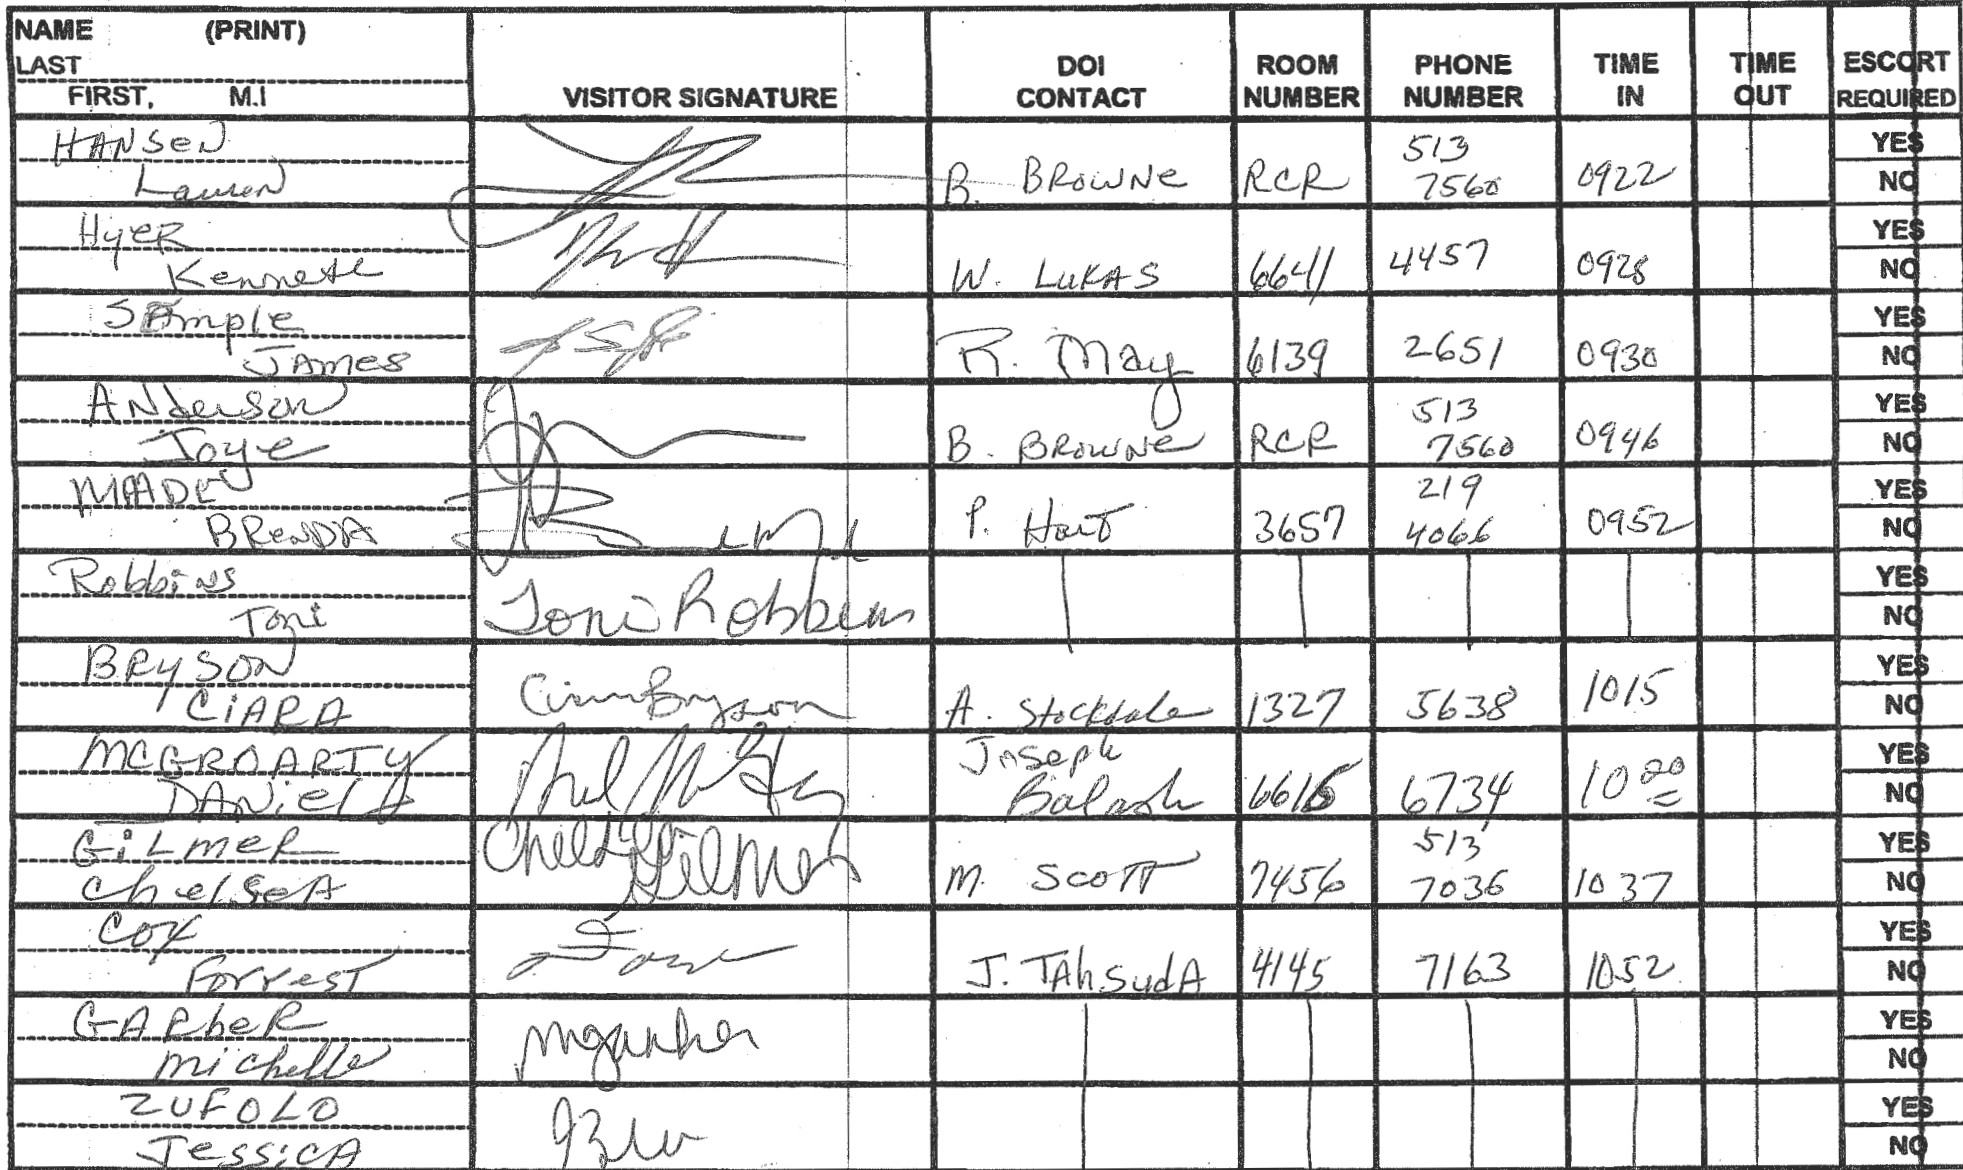 NAME (PRINT)
LAST
FIRST, M.I
VISITOR SIGNATURE
DOI CONTACT
ROOM NUMBER
PHONE NUMBER
TIME IN
TIME OUT
ESCORT REQUIRED
HANSEN
Lauren
B. BROWNE
RCR
513
7560
0922
YES
NO
HyeR
Kenneth
W. LUKAS
6641
4457
0928
YES
NO
SAmple
JAmes
R. May
6139
2651
0930
YES
NO
ANderson
Joye
B. BROWNE
RCR
513
7560
0946
YES
NO
MAADE
BRENDA
P. Hart
3657
219
4066
0952
YES
NO
Robbins
Toni
Toni Robbins
YES
NO
BRYSON
CiARA
Ciara Bryson
A. Stockdale
1327
5638
1015
YES
NO
MCGROARTY
DANiel
Joseph
Balash
6615
6734
10 20
YES
NO
GiLmeR
ChelSeA
Chelsea Gilmer
M. SCOTT
7456
513
7036
1037
YES
NO
COX
ForresT
J. TAhSudA
4145
7163
1052
YES
NO
GARbeR
Michelle
mgarber
YES
NO
ZUFOLO
JessicA
YES
NO